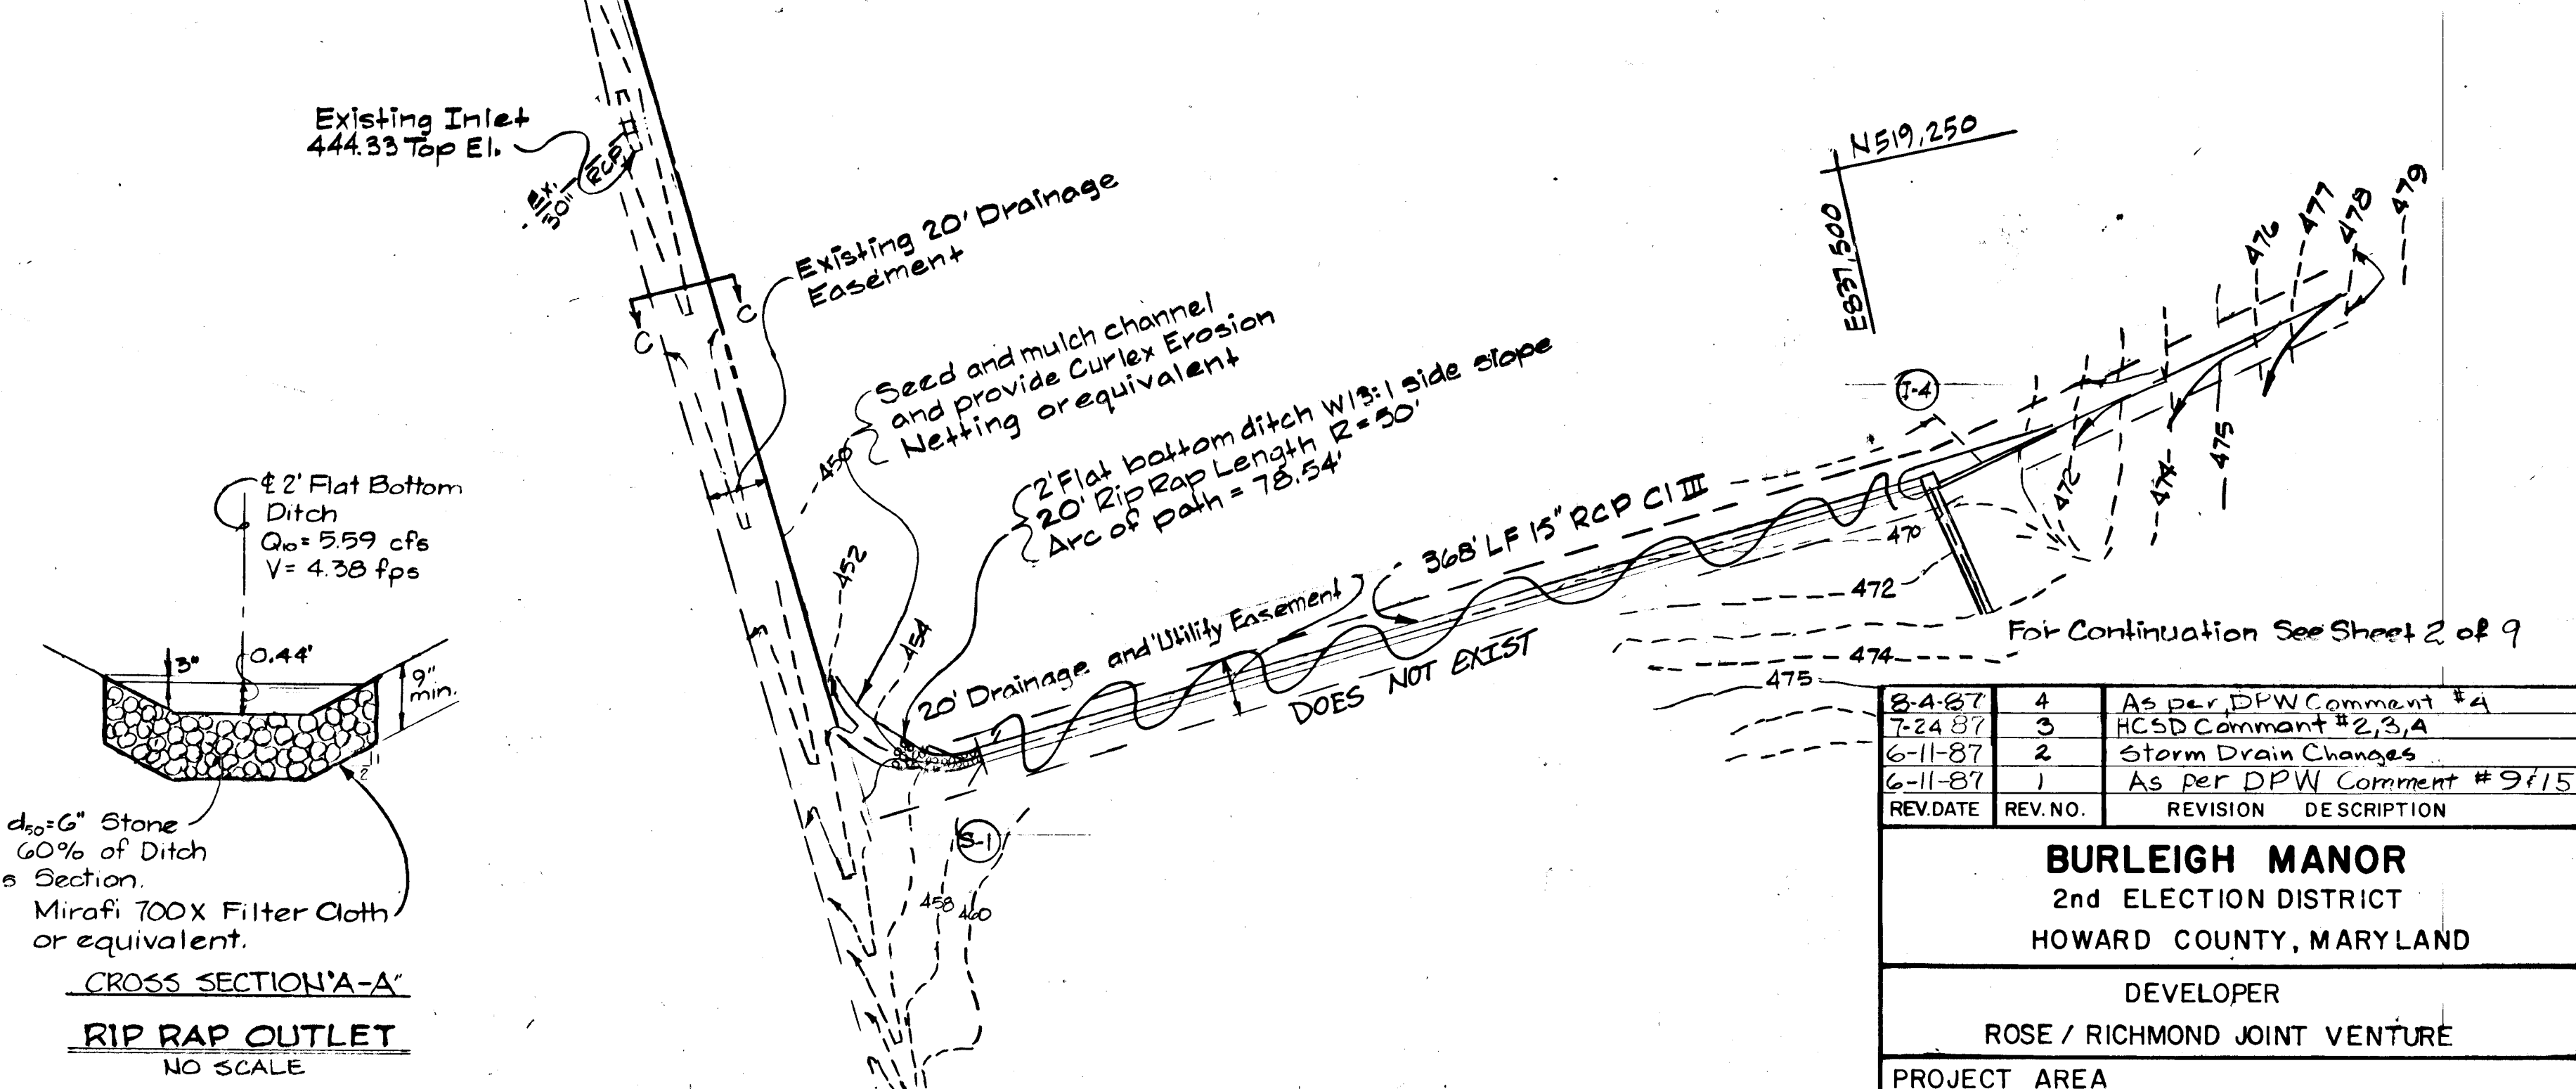 Existing Inlet
444.33 Top El.
Ex.
30"
RCP
C
C
Existing 20' Drainage
Easement
Seed and mulch channel
and provide Curlex Erosion
Netting or equivalent
2' Flat bottom ditch W/3:1 side slope
20' Rip Rap Length R=50'
Arc of path = 78.54'
450
452
454
458
460
S-1
20' Drainage and Utility Easement
368' LF 15" RCP Cl III
DOES NOT EXIST
N519,250
E837,500
I-4
476
477
478
479
472
474
475
470
472
474
475
For Continuation See Sheet 2 of 9
₵ 2' Flat Bottom
Ditch
Q₁₀= 5.59 cfs
V= 4.38 fps
3"
0.44'
9"
min.
1
2
d₅₀=6" Stone
60% of Ditch
s Section.
Mirafi 700X Filter Cloth
or equivalent.
CROSS SECTION "A-A"
RIP RAP OUTLET
NO SCALE
8-4-87 4 As per DPW Comment #4
7-24 87 3 HCSD Commant #2,3,4
6-11-87 2 Storm Drain Changes
6-11-87 1 As per DPW Comment #9&15
REV.DATE REV. NO. REVISION DESCRIPTION
BURLEIGH MANOR
2nd ELECTION DISTRICT
HOWARD COUNTY, MARYLAND
DEVELOPER
ROSE / RICHMOND JOINT VENTURE
PROJECT AREA